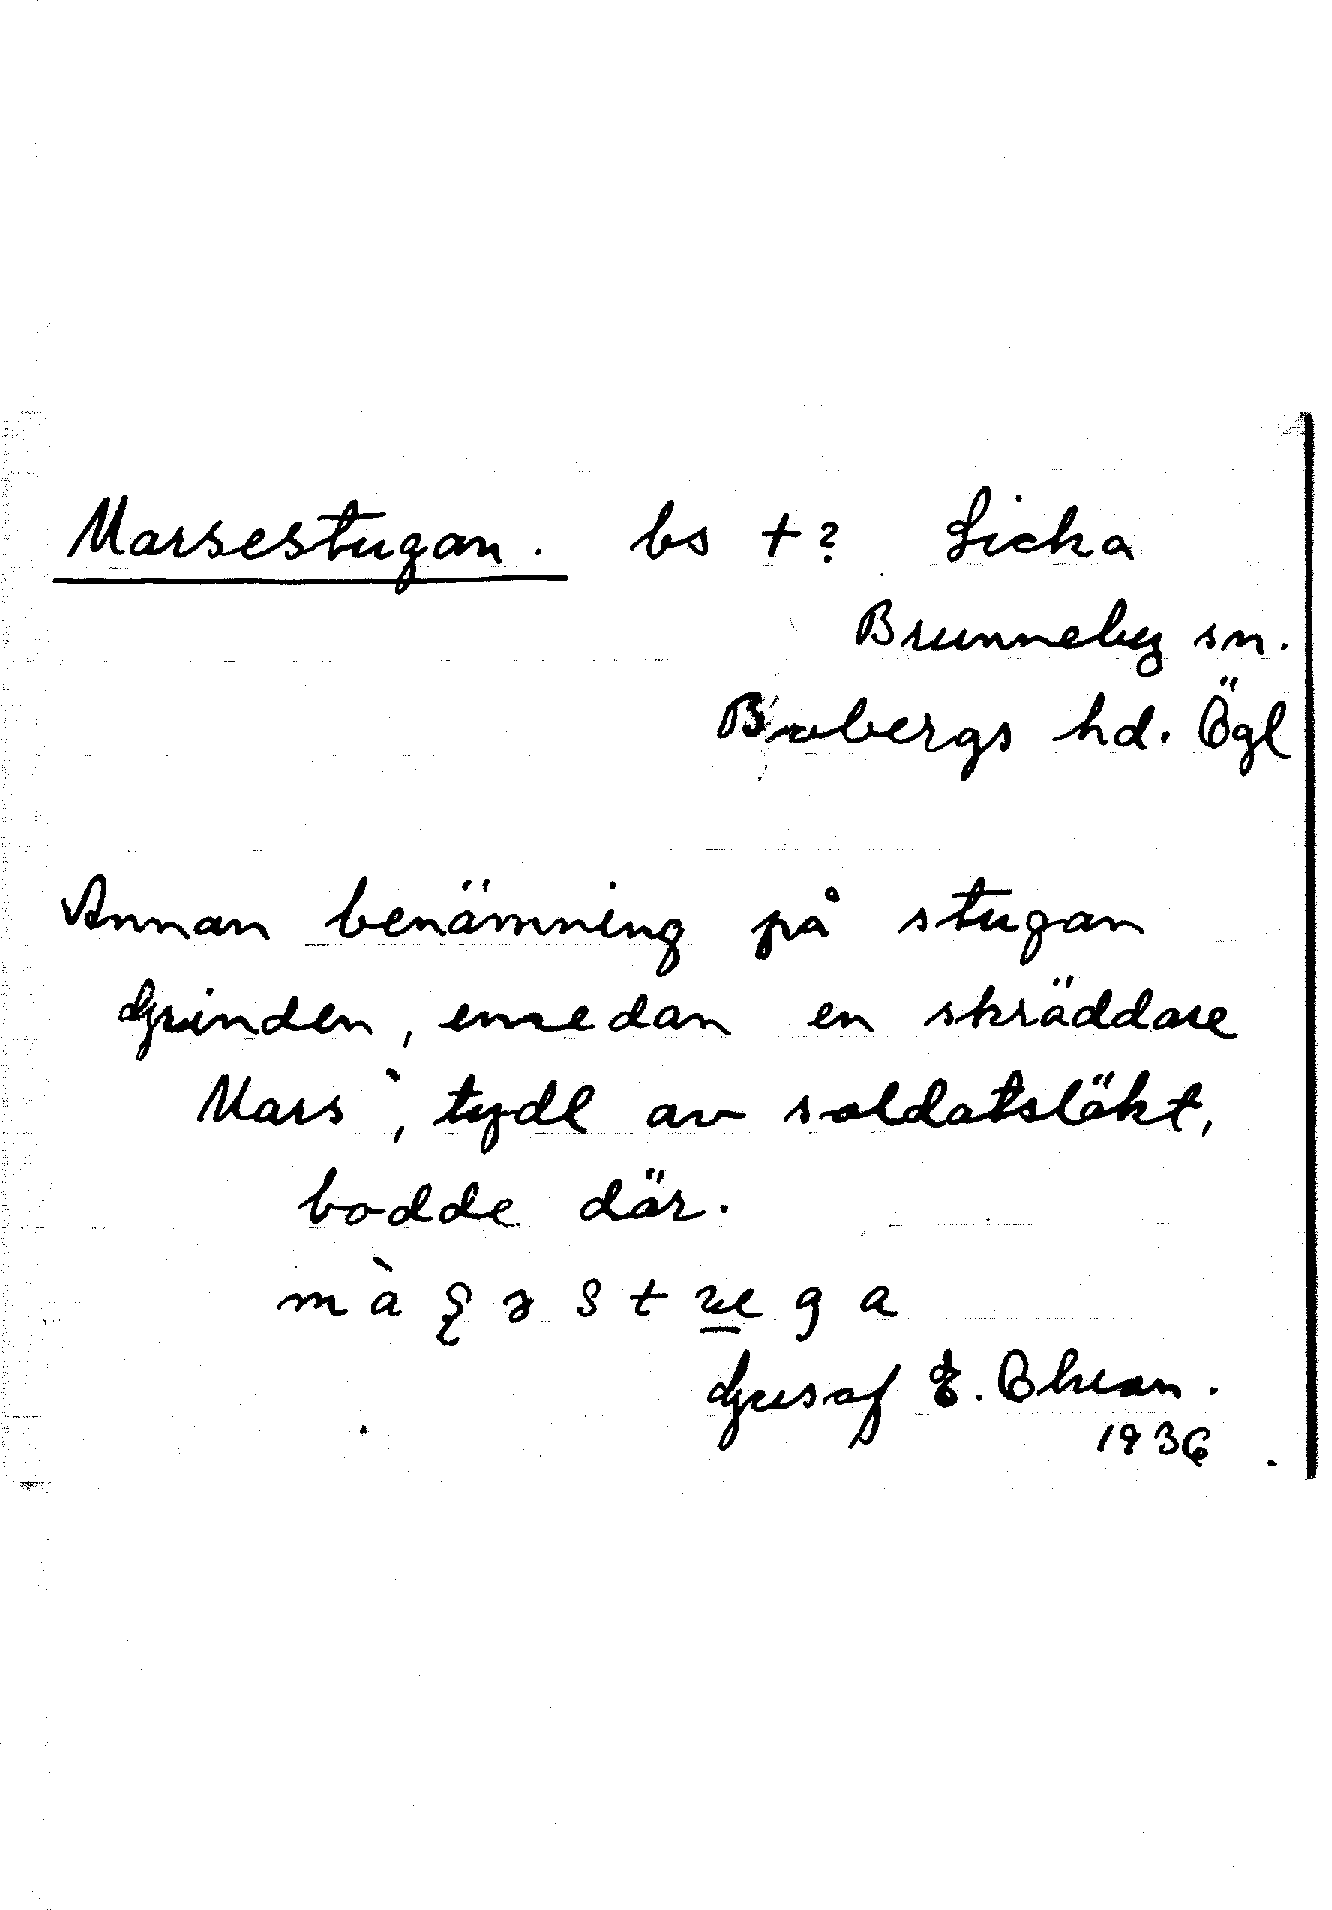 Marsestugan. bs +? Licka
Brunneby sn.
Bobergs hd. Ögl
Annan benämning på stugan
Grinden, emedan en skräddare
Mars, tydl av soldatsläkt,
bodde där.
Gustaf E.
1936